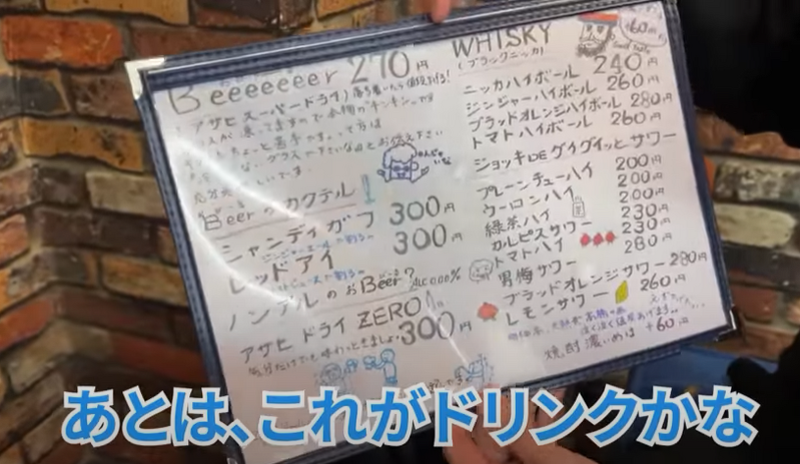 Beeeeeeer 270円
アサヒスーパードライ)
Beerのカクテル
シャンディガフ 300円
レッドアイ 300円
ノンアルのおBeer? ALC0.00%
アサヒ ドライ ZERO 300円
気分だけでも味わっときましょ
WHISKY
(ブラックニッカ)
+60円
ニッカハイボール 240円
ジンジャーハイボール 260円
ブラッドオレンジハイボール 280円
トマトハイボール 260円
ジョッキDEグイグイッとサワー
プレーンチューハイ 200円
ウーロンハイ 200円
緑茶ハイ 200円
カルピスサワー 230円
トマトハイ 230円
男梅サワー 280円
ブラッドオレンジサワー 280円
レモンサワー 260円
焼酎濃いめは +60円
あとは、これがドリンクかな